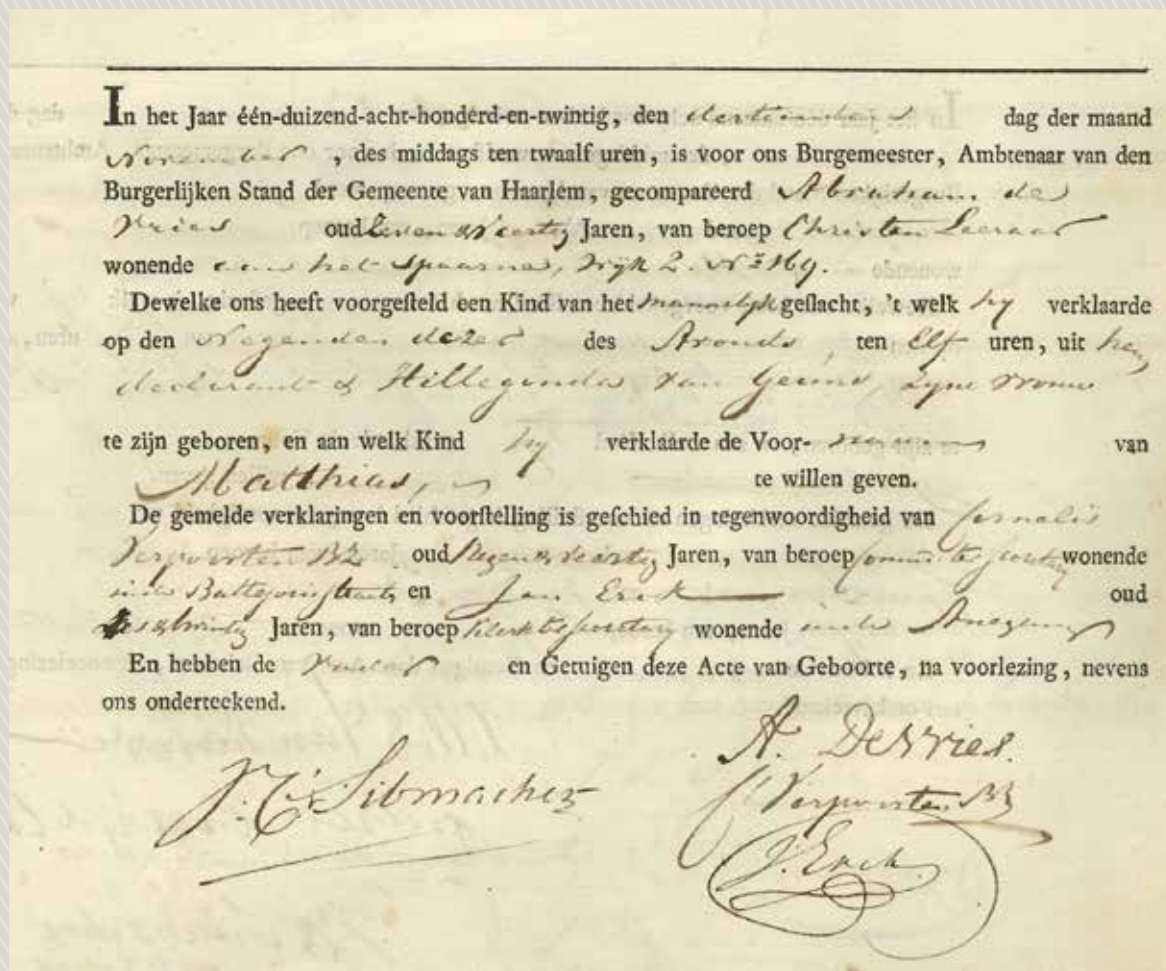 In het Jaar één-duizend-acht-honderd-en-twintig, den dertienden dag der maand
November, des middags ten twaalf uren, is voor ons Burgemeester, Ambtenaar van den
Burgerlijken Stand der Gemeente van Haarlem, gecompareerd Abraham de
Vries oud Zeven & Veertig Jaren, van beroep Christen Leeraar
wonende aan het Spaarne, Wijk 2. No 169.
Dewelke ons heeft voorgesteld een Kind van het mannelijk geslacht, 't welk hy verklaarde
op den Negenden dezer des Avonds, ten Elf uren, uit hem
declarant & Hillegonda van Geuns, zyne vrouw
te zijn geboren, en aan welk Kind hy verklaarde de Voor-namen van
Matthias, te willen geven.
De gemelde verklaringen en voorstelling is geschied in tegenwoordigheid van Cornelis
Verpoorten BZ oud Negen & Veertig Jaren, van beroep wonende
in de en Jan Erck oud
Jaren, van beroep Klerk ter Secretary wonende in de Anegang
En hebben de Vader en Getuigen deze Acte van Geboorte, na voorlezing, nevens
ons onderteekend.
A. De Vries.
J. C. Sibmacher
C Verpoorten BZ
J. Erck